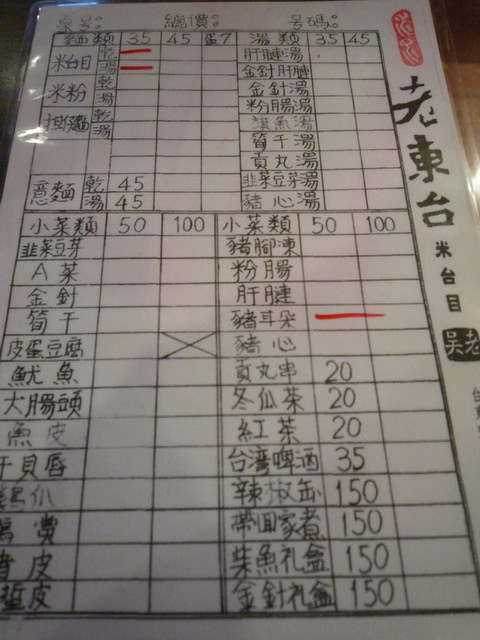 桌号: 總價: 号碼:
麵類 35 45 蛋7 湯類 35 45
米台目 乾 湯 肝膁湯
金針肝膁
米粉 乾 湯 金針湯
粉腸湯
担仔麵 乾 湯 旗魚湯
筍干湯
貢丸湯
意麵 乾 45 韭菜豆芽湯
湯 45 豬心湯
小菜類 50 100 小菜類 50 100
韭菜豆芽 豬腳凍
A菜 粉腸
金針 肝膁
筍干 豬耳朵
皮蛋豆腐 豬心
魷魚 貢丸串 20
大腸頭 冬瓜茶 20
魚皮 紅茶 20
干貝唇 台湾啤酒 35
辣椒缶 150
帶回家煮 150
皮 柴魚礼盒 150
皮 金針礼盒 150
老東台
米台目
老吳